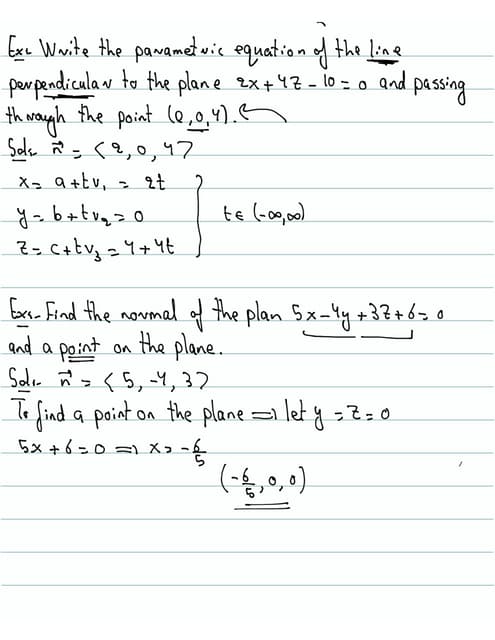 Ex:- Write the parametric equation of the line
perpendicular to the plane 2x+4z-10=0 and passing
through the point (0,0,4).
Sol:- n⃗ = <2,0,4>
x= a+tv₁ = 2t
y=b+tv₂=0 t∈(-∞,∞)
z=c+tv₃=4+4t
Ex:- Find the normal of the plan 5x-4y+3z+6=0
and a point on the plane.
Sol:- n⃗ = <5,-4,3>
To find a point on the plane ⟹ let y=z=0
5x+6=0 ⟹ x=-6/5
(-6/5,0,0)